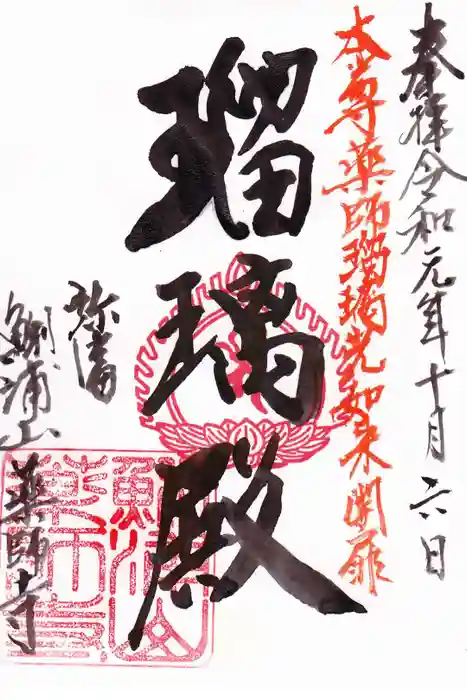 奉拝 令和元年十月六日
本尊薬師瑠璃光如来開扉
瑠璃殿
弥富
鯏浦山
薬師寺